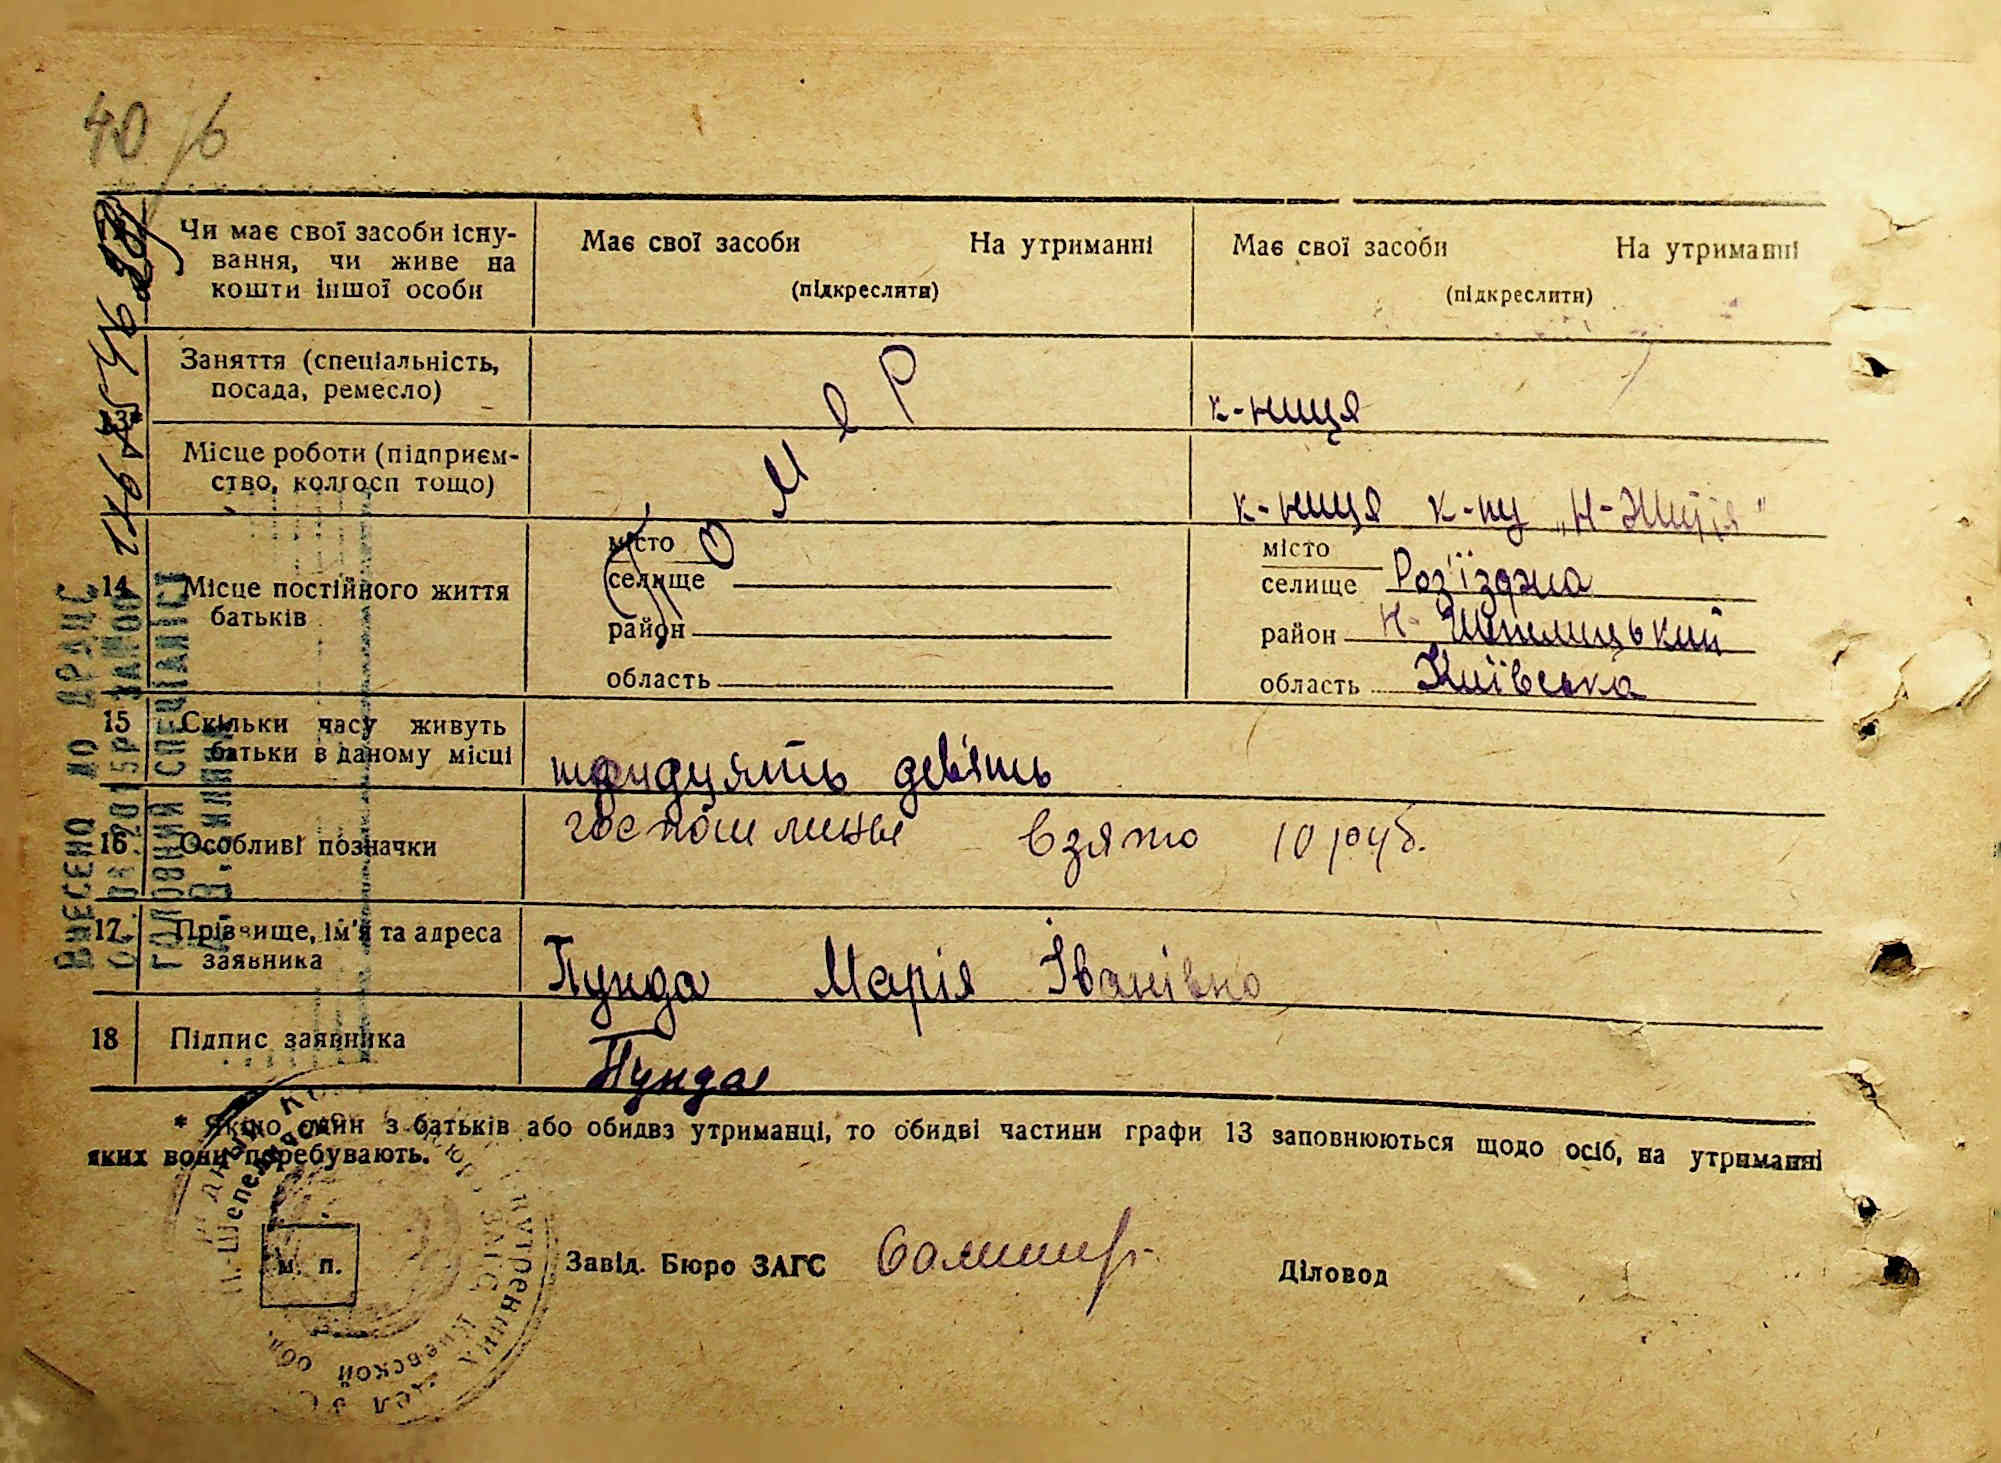 40
Чи має свої засоби існу-
вання, чи живе на
кошти іншої особи
Має свої засоби На утриманні
(підкреслити)
Має свої засоби На утриманні
(підкреслити)
13*
Заняття (спеціальність,
посада, ремесло)
к-ниця
Місце роботи (підприєм-
ство, колгосп тощо)
к-ниця к-пу „Н-Життя"
Помер
14 Місце постійного життя
батьків
місто
селище
район
область
місто
селище Роз'їзджа
район Н-Шепелицький
область Київська
15 Скільки часу живуть
батьки в даному місці
тридцять девять
16 Особливі позначки
госпошлины взято 10 руб.
17. Прізвище, ім'я та адреса
заявника
Пунда Марія Іванівна
18 Підпис заявника
Пунда
* Якщо один з батьків або обидвз утриманці, то обидві частини графи 13 заповнюються щодо осіб, на утриманні
яких вони перебувають.
м. п.
Завід. Бюро ЗАГС
Діловод
ВНЕСЕНО ДО ДРАЦС
ГОЛОВНИЙ СПЕЦІАЛІСТ
Киевской обл.